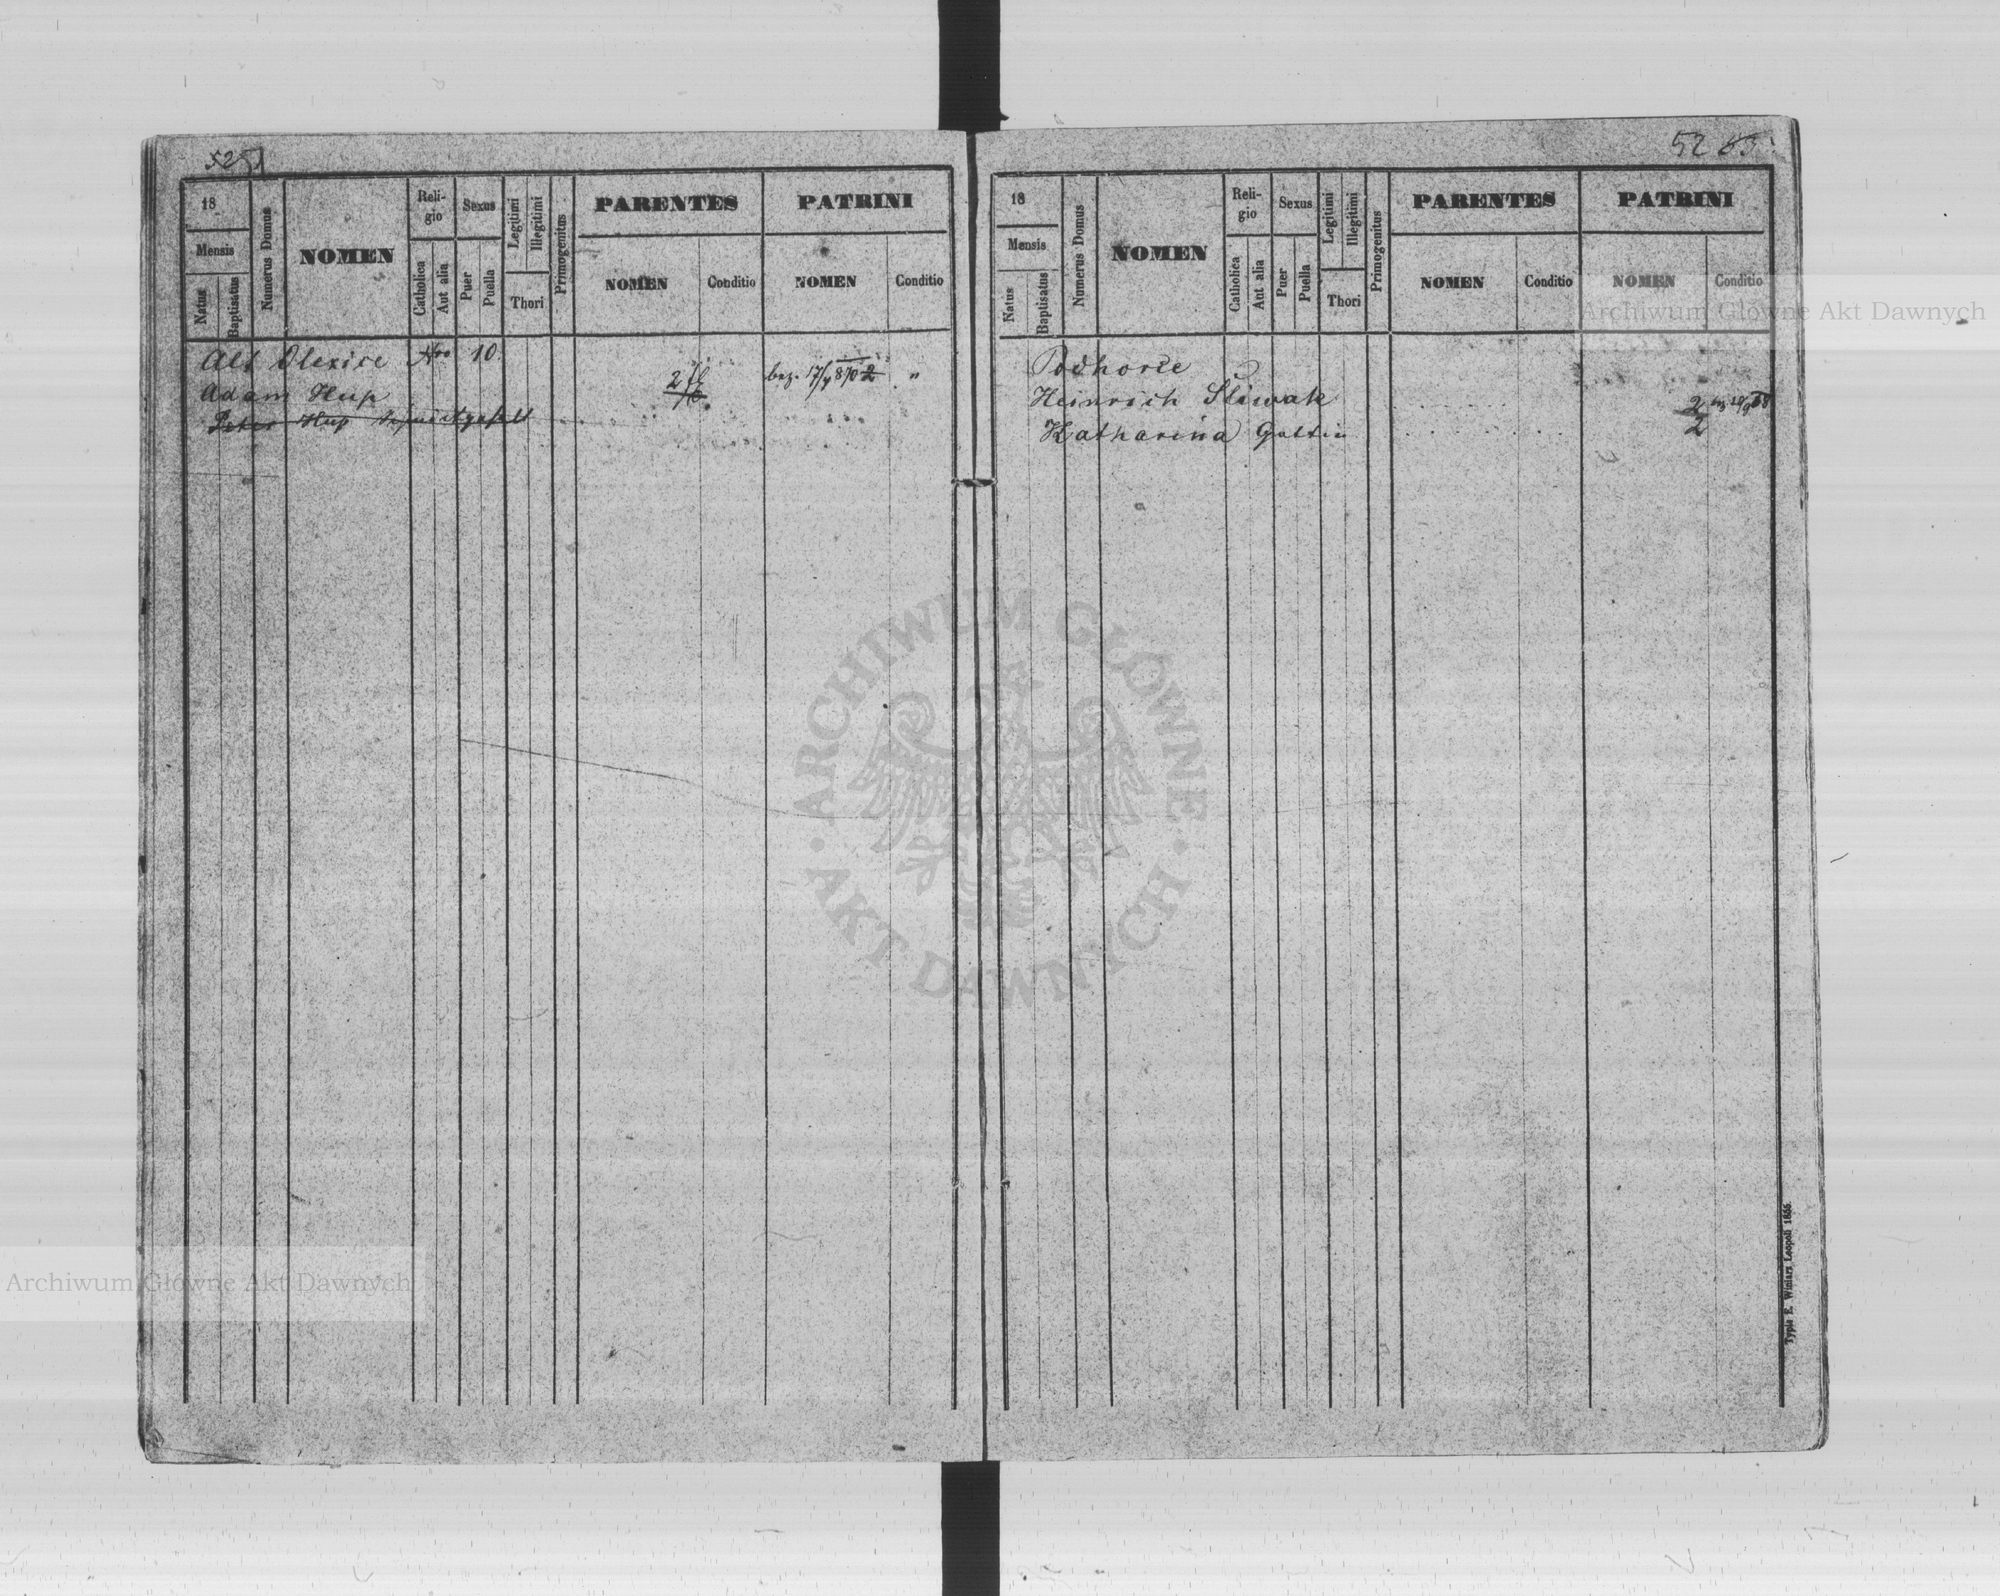 18
Mensis
Natus
Baptisatus
Numerus Domus
NOMEN
Religio
Catholica
Aut alia
Sexus
Puer
Puella
Legitimi
Illegitimi
Thori
Primogenitus
PARENTES
NOMEN
Conditio
PATRINI
NOMEN
Conditio
Alt Olexice Nro 10
Adam Hup
2 fl
bez.
Peter Hup
5265
18
Mensis
Natus
Baptisatus
Numerus Domus
NOMEN
Religio
Catholica
Aut alia
Sexus
Puer
Puella
Legitimi
Illegitimi
Thori
Primogenitus
PARENTES
NOMEN
Conditio
PATRINI
NOMEN
Conditio
Podhorce
Heinrich Sliwak
2
2
Katharina Gattin
Typis E. Winiarz Leopoli 1855
Archiwum Główne Akt Dawnych
ARCHIWUM GŁÓWNE
· AKT DAWNYCH ·
Archiwum Główne Akt Dawnych